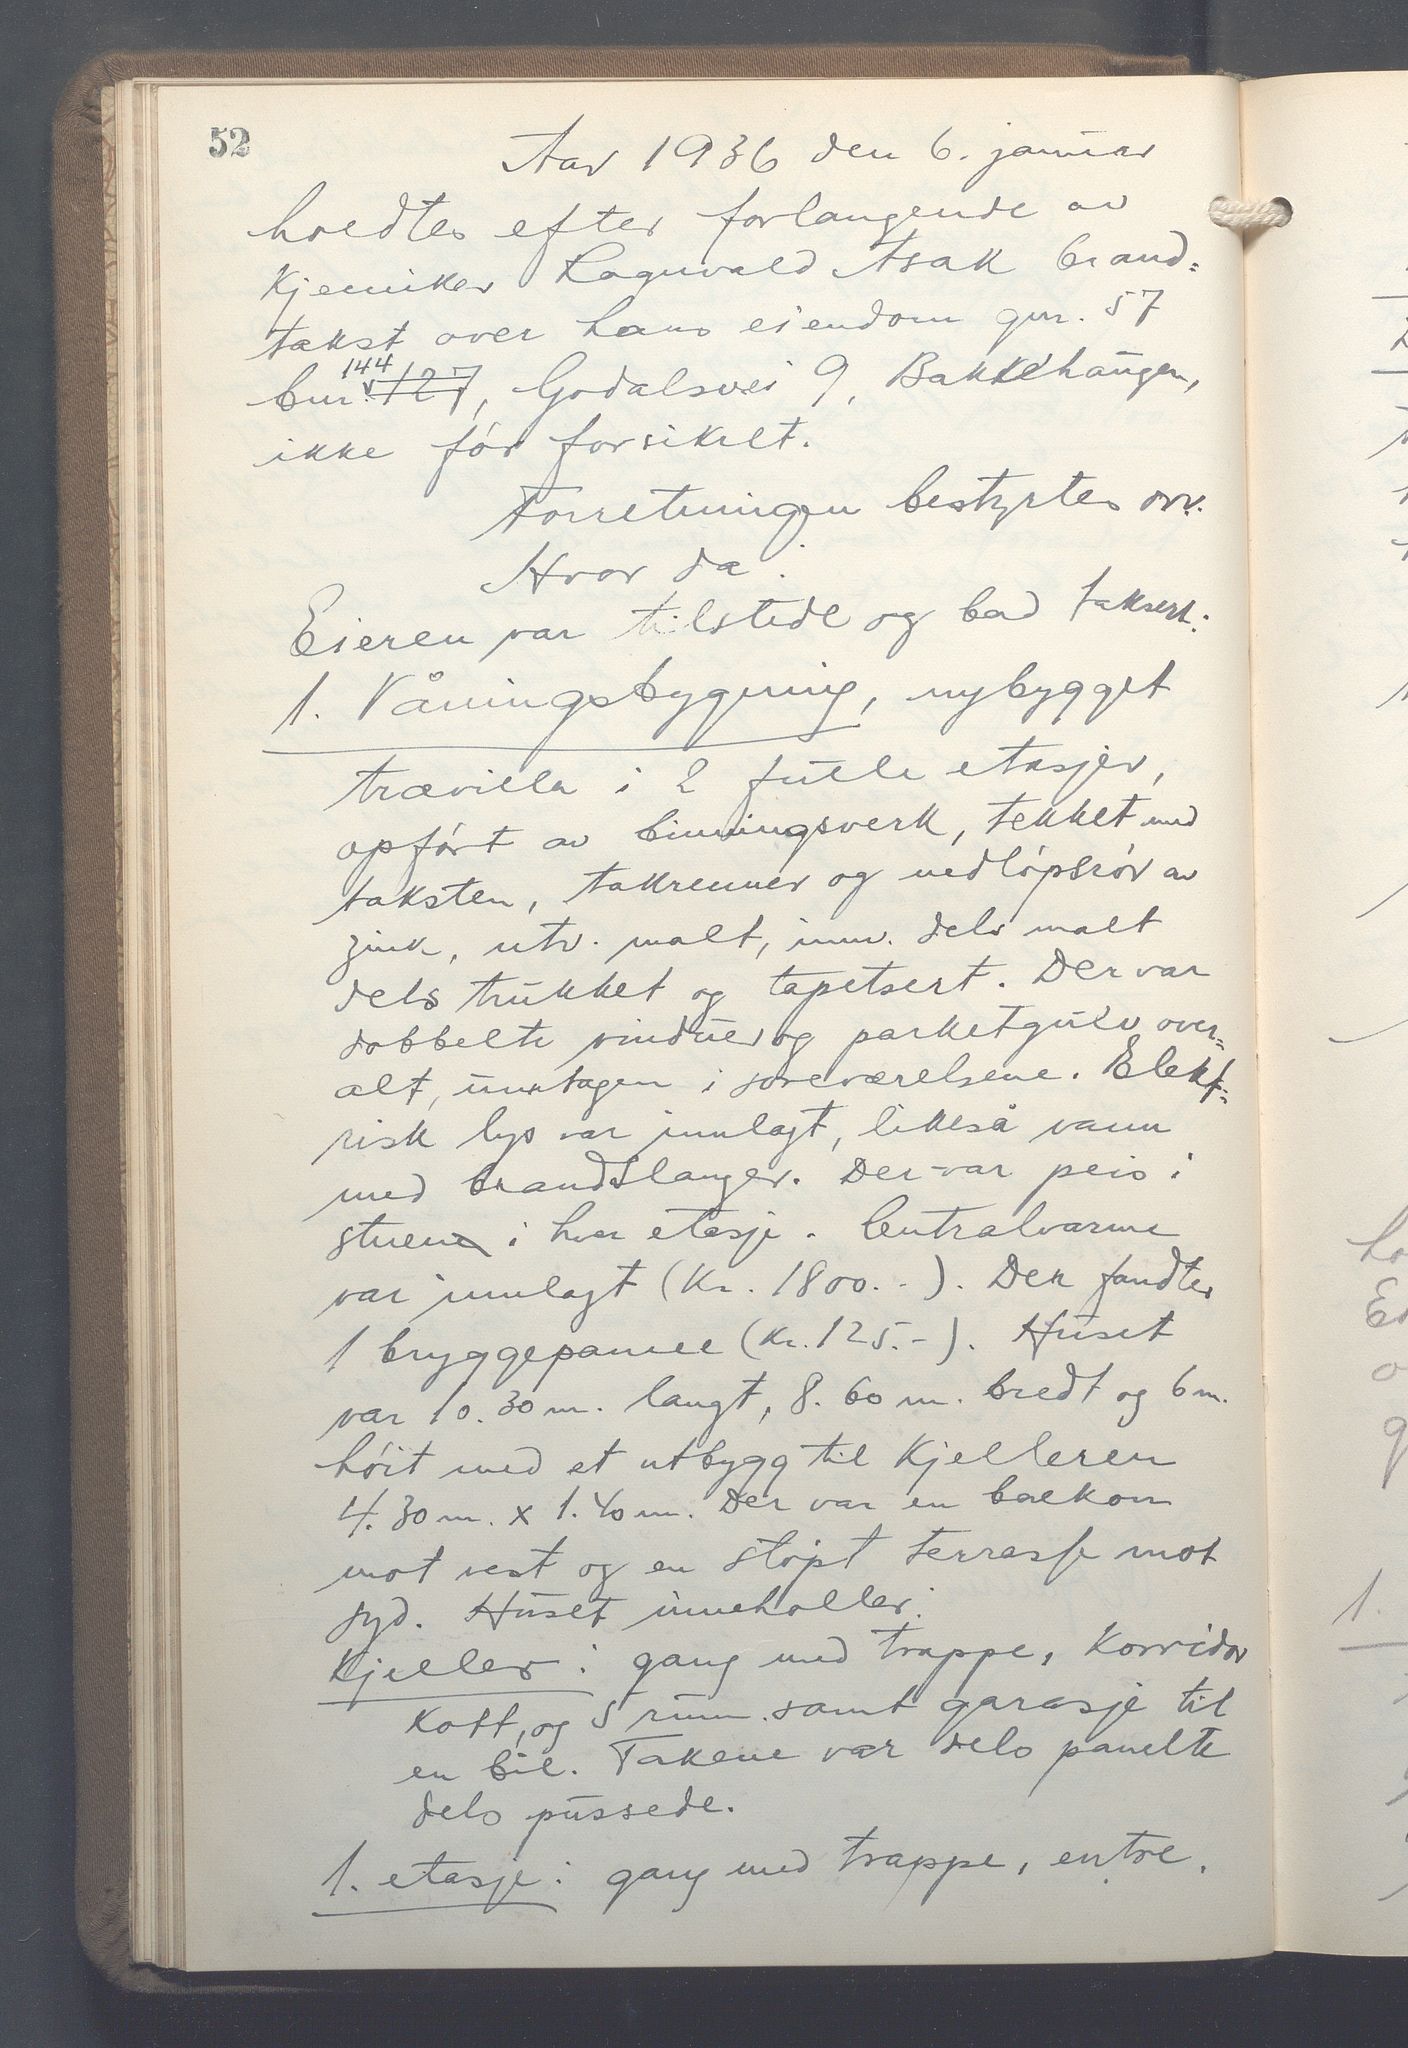 52
Aar 1936 den 6. januar
holdtes efter forlangende av
Kjemiker Ragnvald Asak brand=
takst over hans eiendom gnr. 57
144
bnr. 127, Godalsvei 9, Bakkehaugen,
ikke før forsikret.
Forretningen bestyrtes ovv.
Hvor da:
Eieren var tilstede og bad taksert:
1. Våningsbygning, nybygget
trævilla i 2 fulle etasjer,
opført av binningsverk, tekket med
taksten, takrenner og nedløpsrør av
zink, utv. malt, innv. dels malt
dels trukket og tapetsert. Der var
dobbelte vinduer og parketgulv over=
alt, unntagen i soveværelsene. Elekt=
risk lys var innlagt, likeså vann
med brandslanger. Der var peis i
stuen i hver etasje. Centralvarme
var innlagt (Kr. 1800.-). Der fandtes
1 bryggepanne (Kr. 125.-). Huset
var 10.30 m. langt, 8.60 m. bredt og 6 m.
høit med et utbygg til Kjelleren
4.30 m. x 1.40 m. Der var en balkon
mot vest og en støpt terrasse mot
syd. Huset inneholler:
Kjeller: gang med trappe, Korridor
Kott, og 5 rum samt garasje til
en bil. Takene var dels panelte
dels pussede.
1. etasje: gang med trappe, entre,